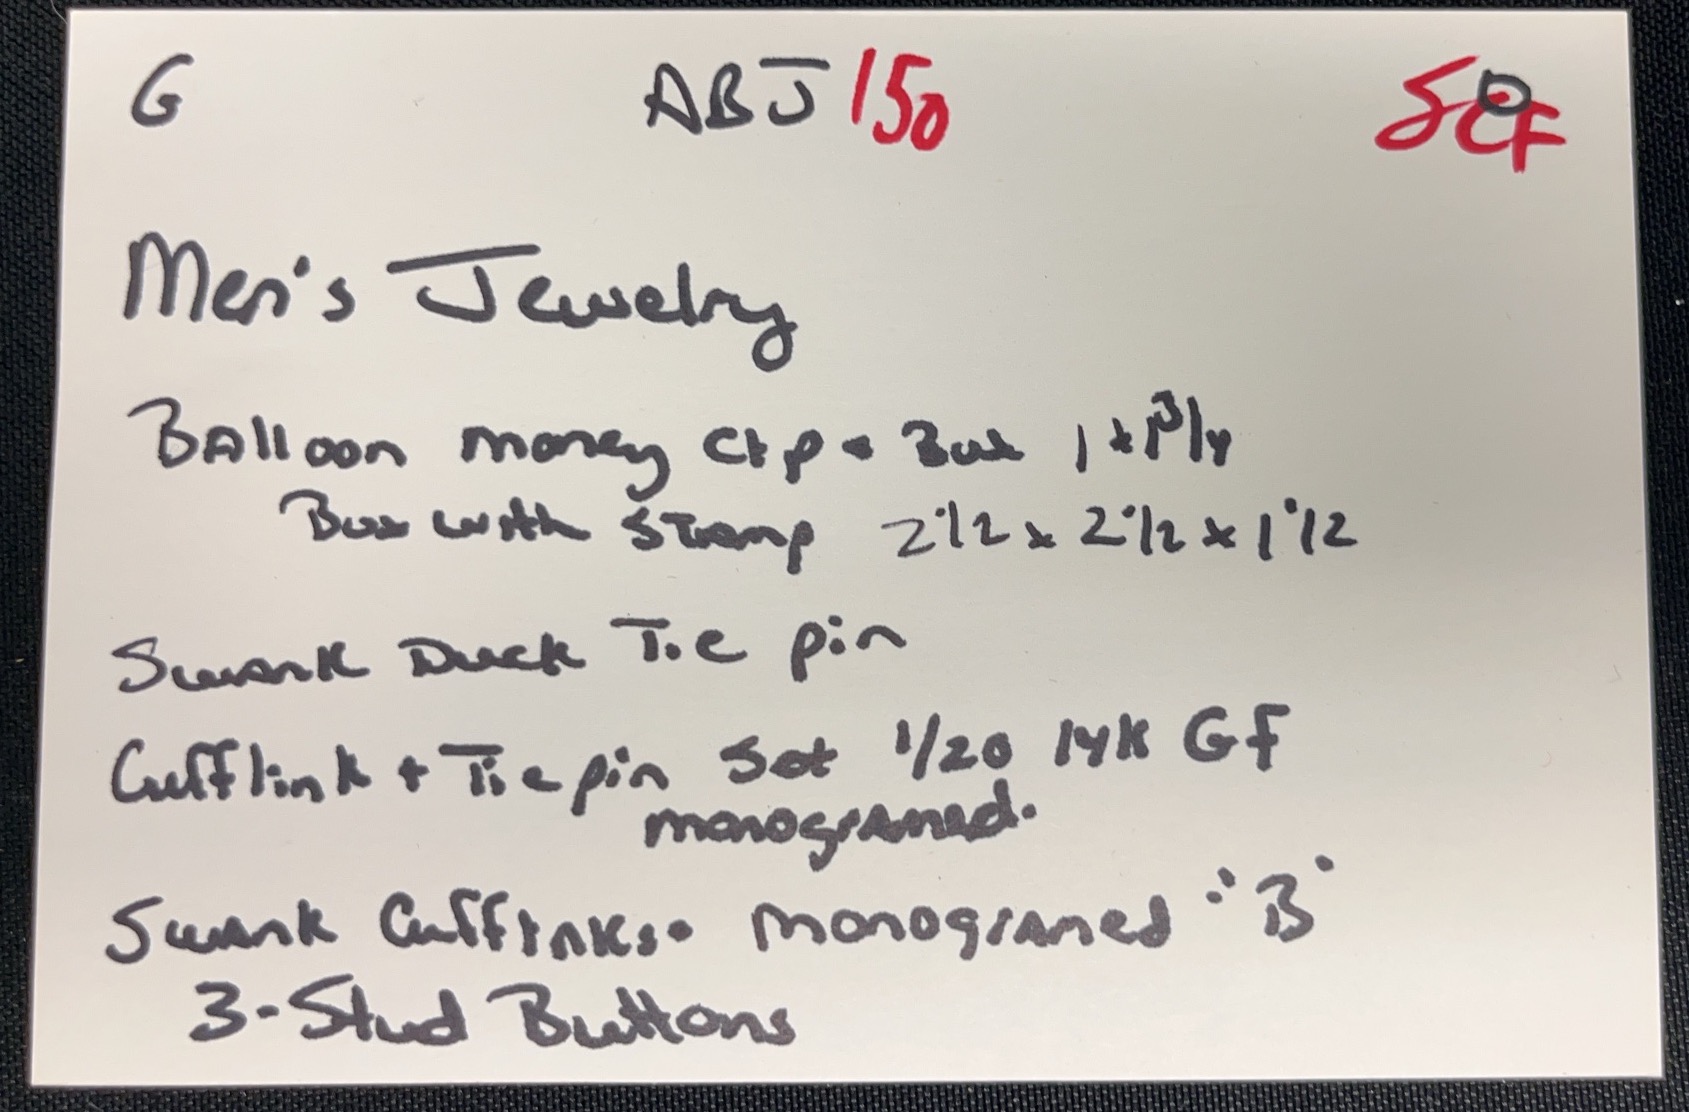 G ABJ 150
Men's Jewelry
Balloon money clip 1 x 1 3/4
Box with stamp 2 1/2 x 2 1/2 x 1 1/2
Swank Duck Tie pin
Cufflink + Tie pin Set 1/20 14K GF
monogramed.
Swank Cufflinks. monogramed "B"
3-Stud Buttons